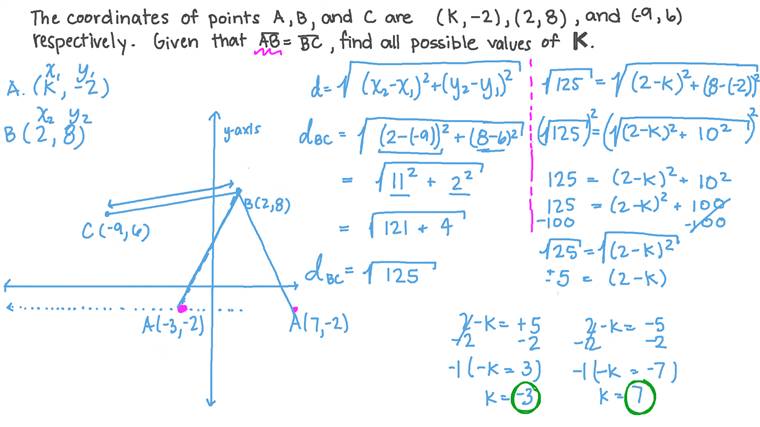 The coordinates of points A, B, and C are (K, -2), (2, 8), and (-9, 6)
respectively. Given that AB = BC, find all possible values of K.
x₁ y₁
A. (K, -2)
x₂ y₂
B (2, 8)
y-axis
B(2,8)
C(-9,6)
A(-3,-2)
A(7,-2)
d = √(x₂-x₁)² + (y₂-y₁)²
d_BC = √(2-(-9))² + (8-6)²
= √11² + 2²
= √121 + 4
d_BC = √125
√125 = √(2-K)² + (8-(-2))²
(√125)² = (√(2-K)² + 10²)²
125 = (2-K)² + 10²
125 = (2-K)² + 100
-100 -100
√25 = √(2-K)²
±5 = (2-K)
2-K = +5
-2 -2
-1(-K = 3)
K = -3
2-K = -5
-2 -2
-1(-K = -7)
K = 7